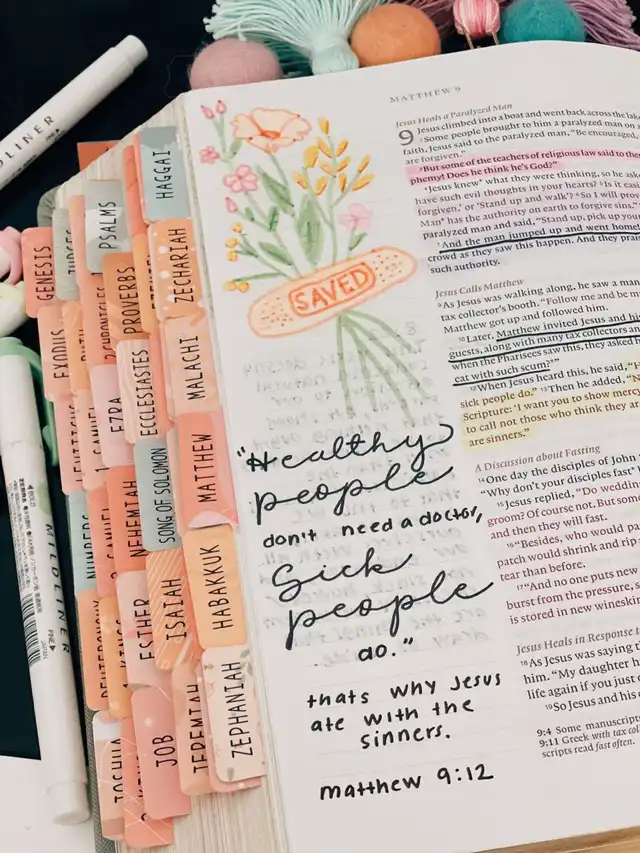 MATTHEW 9
Jesus Heals a Paralyzed Man
9 Jesus climbed into a boat and went back across the lake
2Some people brought to him a paralyzed man on a
faith, Jesus said to the paralyzed man, "Be encouraged,
are forgiven."
3But some of the teachers of religious law said to the
phemy! Does he think he's God?"
4Jesus knew what they were thinking, so he aske
have such evil thoughts in your hearts? 5Is it easi
forgiven,' or 'Stand up and walk'? 6So I will prov
Man has the authority on earth to forgive sins."
paralyzed man and said, "Stand up, pick up you
7And the man jumped up and went home!
crowd as they saw this happen. And they prai
such authority.
Jesus Calls Matthew
9As Jesus was walking along, he saw a man
tax collector's booth. "Follow me and be m
Matthew got up and followed him.
10Later, Matthew invited Jesus and his
guests, along with many tax collectors an
when the Pharisees saw this, they asked h
eat with such scum?"
12When Jesus heard this, he said, "H
sick people do." 13Then he added, "N
Scripture: 'I want you to show mercy
to call not those who think they ar
are sinners."
A Discussion about Fasting
14One day the disciples of John
"Why don't your disciples fast
15Jesus replied, "Do wedding
groom? Of course not. But som
and then they will fast.
16"Besides, who would pa
patch would shrink and rip
tear than before.
17"And no one puts new
burst from the pressure, s
is stored in new wineskin
Jesus Heals in Response t
18As Jesus was saying th
him. "My daughter h
life again if you just c
19So Jesus and his
9:4 Some manuscrip
9:11 Greek with tax col
scripts read fast often.
SAVED
"Healthy
people
don't need a doctor,
Sick
people
do."
thats why Jesus
ate with the
sinners.
matthew 9:12
GENESIS
EXODUS
LEVITICUS
NUMBERS
DEUTERONOMY
JOSHUA
JUDGES
RUTH
1 SAMUEL
2 SAMUEL
1 KINGS
2 CHRONICLES
EZRA
NEHEMIAH
ESTHER
JOB
PSALMS
PROVERBS
ECCLESIASTES
SONG OF SOLOMON
ISAIAH
JEREMIAH
HAGGAI
ZECHARIAH
MALACHI
MATTHEW
HABAKKUK
ZEPHANIAH
DLINER
MILDLINER
ZEBRA
BOLD
FINE
JAPAN